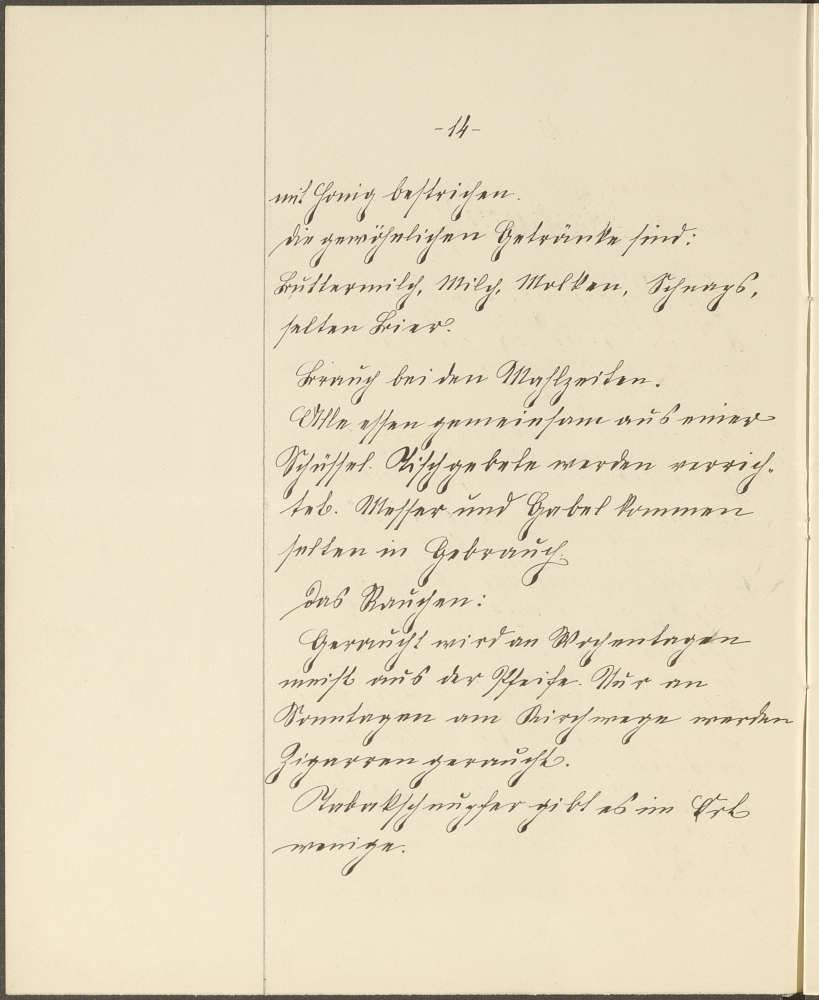 -14-
mit Honig bestrichen.
Die gewöhnlichen Getränke sind:
Buttermilch, Milch, Molken, Schnaps,
selten Bier.
Brauch bei den Mahlzeiten.
Alle essen gemeinsam aus einer
Schüssel. Tischgebete werden verrich-
tet. Messer und Gabel kommen
selten in Gebrauch.
Das Rauchen:
Geraucht wird an Wochentagen
meist aus der Pfeife. Nur an
Sonntagen am Kirchwege werden
Zigarren geraucht.
Tabakschnupfer gibt es im Ort
wenige.